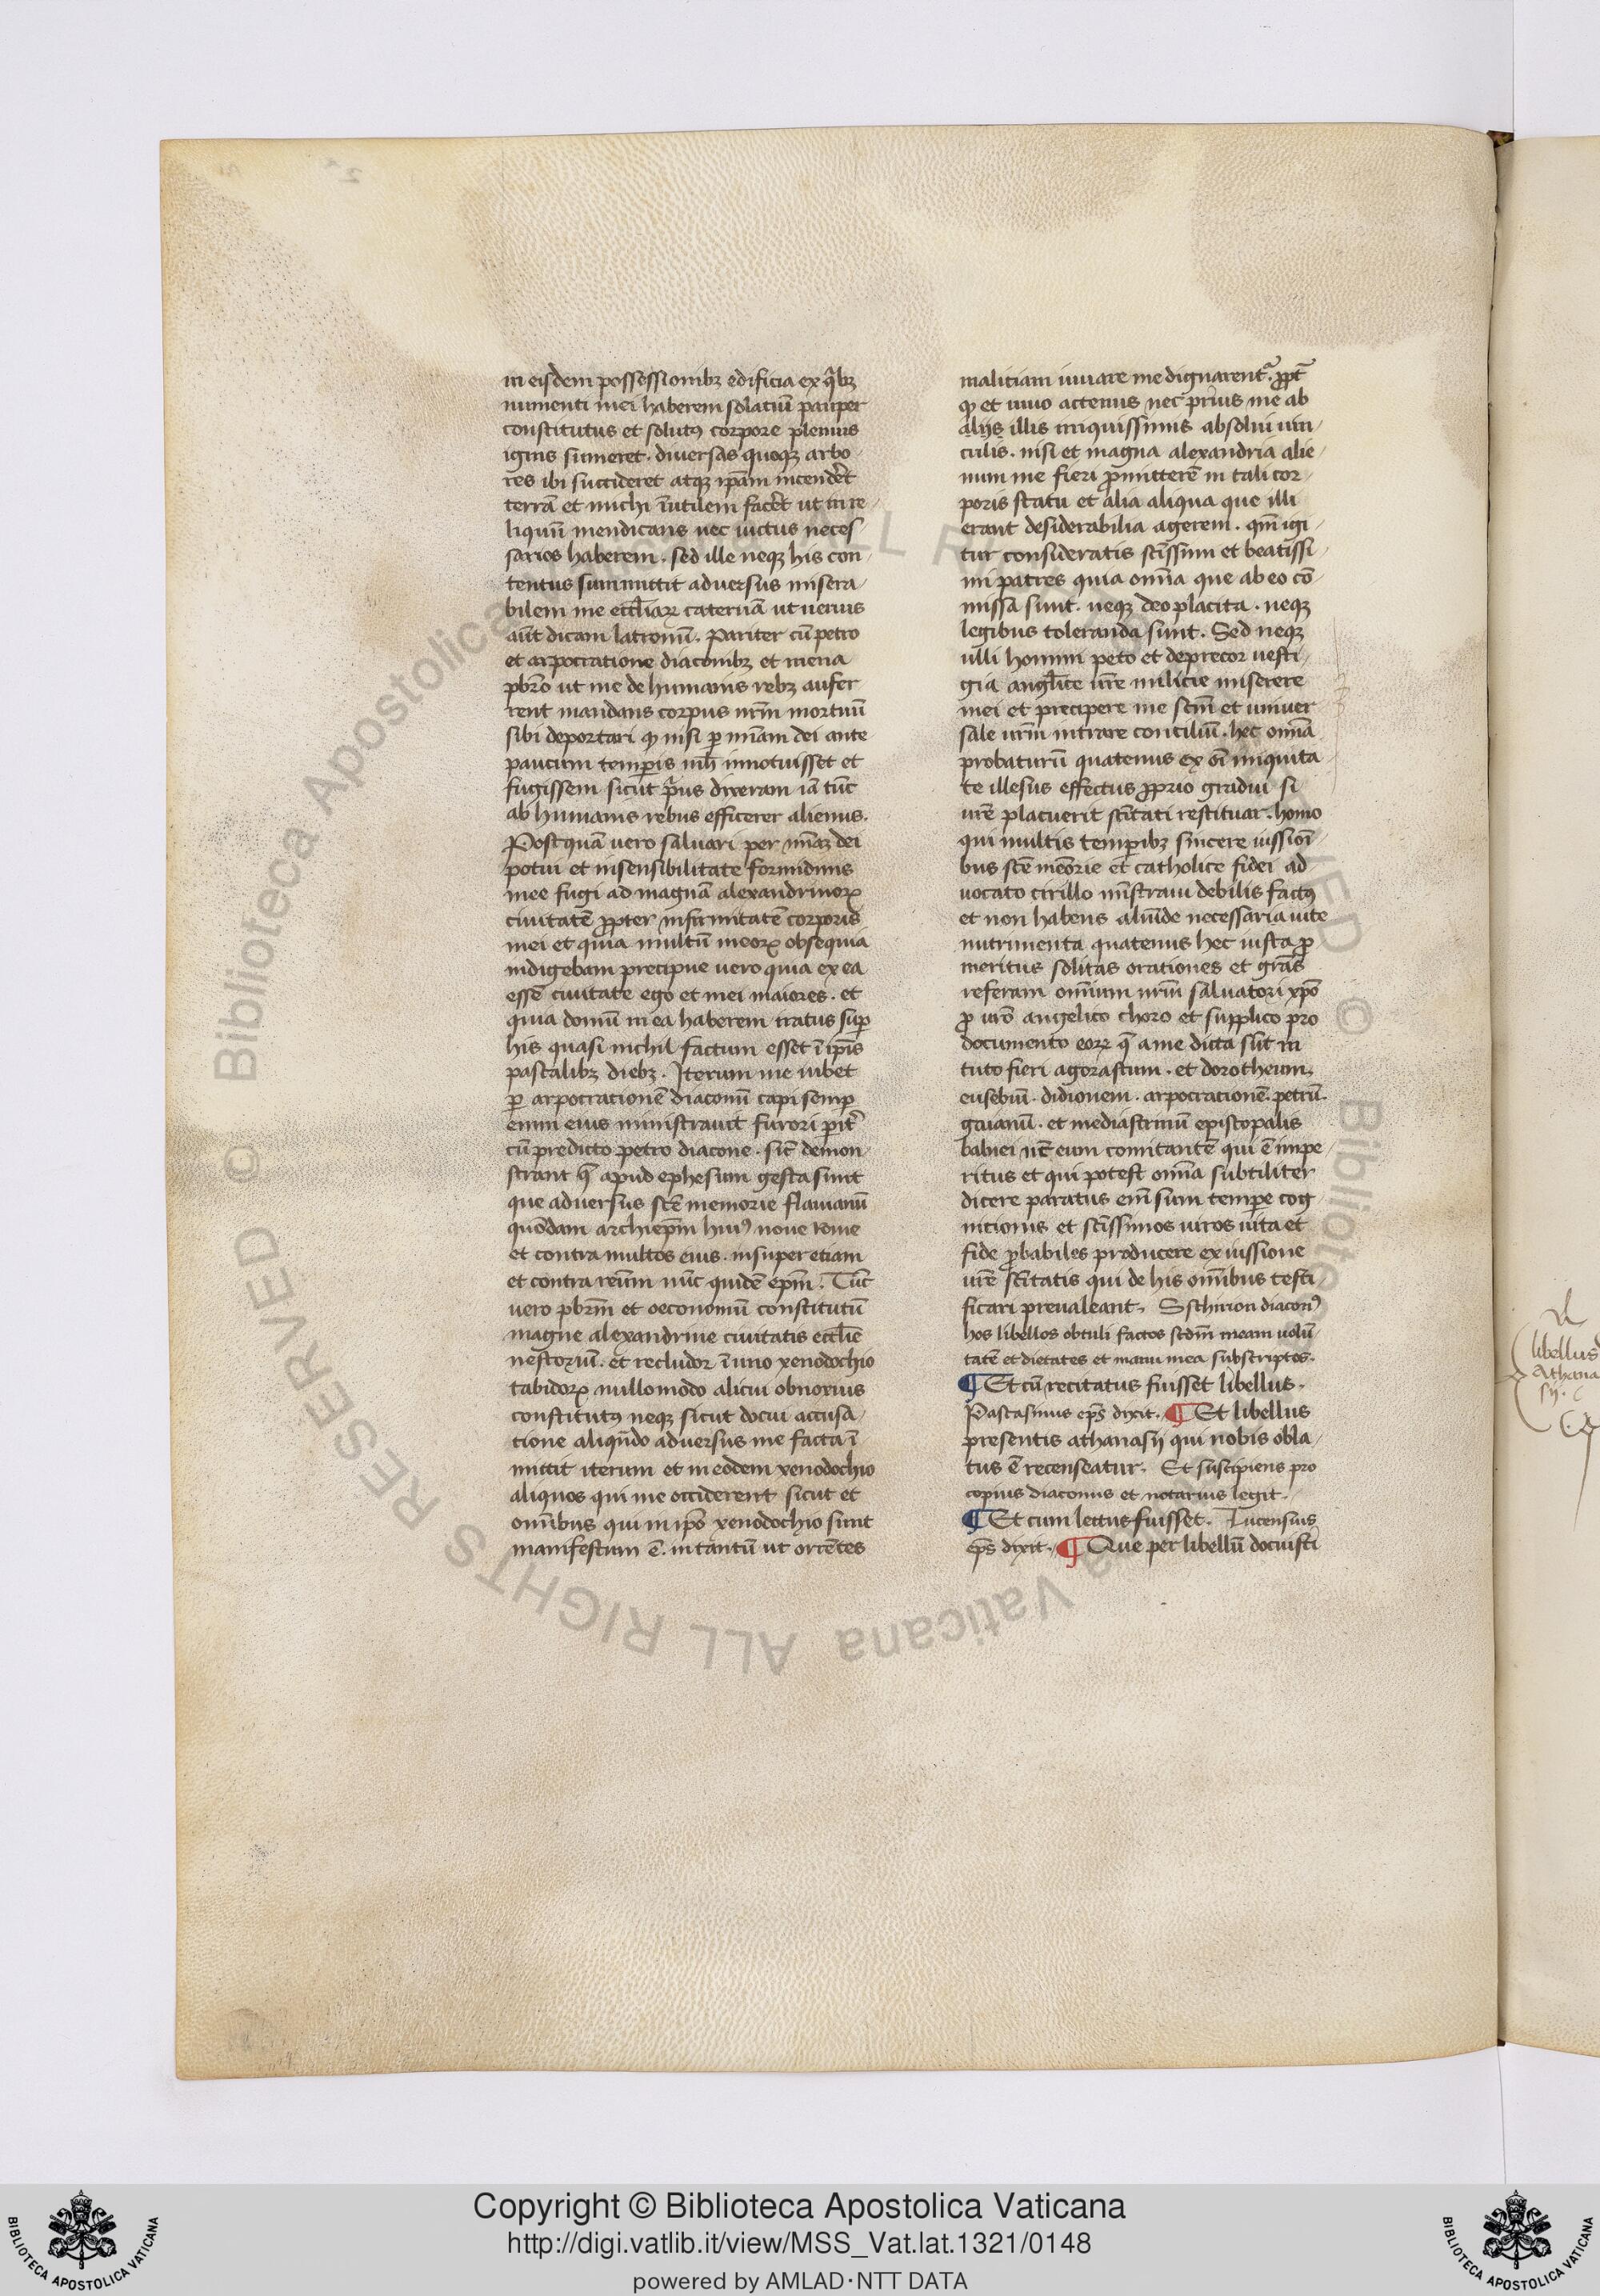 in eisdem possessionibꝫ edificia ex qͥbꝫ
numenti mei haberem solaciū pauper
constitutus et solutꝯ corpore plenius
ignis sumeret. diuersas quoqꝫ arbo-
res ibi succideret atqꝫ ip̄am incend̄et
terrā et michi īutilem fac̄et ut in re-
liquū mendicans nec uictus neces-
sarios haberem. sed ille neqꝫ his con-
tentus summittit aduersus misera-
bilem me eccl̄iaꝝ cateruā ut uerius
aūt dicam latronū. Pariter cū petro
et arpocratione diaconibꝫ et mena
pb̄ro ut me de humanis rebꝫ aufer
rent mandans corpus nr̄m mortuū
sibi deportari ꝙ nisi ꝑ mīam dei ante
paucum temꝑis mͨh innotuisset et
fugissem sicut pͥus dixeram iā tūc
ab humanis rebus efficerer alienus.
Postquā vero saluari per mīaꝫ dei
potui et insensibilitate formidinis
mee fugi ad magnā alexandrinoꝝ
ciuitatē ꝓpter infirmitatē corporis
mei et quia multū meoꝝ obsequia
indigebam precipue uero quia ex ea
essē ciuitate ego et mei maiores. et
quia domū in ea haberem iratus suꝑ
his quasi nichil factum esset ī ip̄is
pascalibꝫ diebꝫ. Iterum me iubet
ꝑ arpocrationē diaconū capi semꝑ
enim eius ministrauit furori ꝑit̄
cū predicto petro diacone. sic̄ demon-
strant q̄ apud ephesum gesta sunt
que aduersus sc̄e memorie flauianū
quōdam archiep̄m huiꝯ noue rome
et contra multos eius. insuper etiam
et contra reūm nūc quidē ep̄m. Tūc
vero pb̄rm et oeconomū constitutū
magne alexandrine ciuitatis eccl̄ie
nestoriū. et recludor ī uno xenodochio
tabidoꝝ nullomodo alicui obnoxius
constitutꝯ neqꝫ sicut docui accusa-
tione aliqn̄do aduersus me facta ī
mittit iterum et in eodem xenodochio
aliquos qui me occiderent sicut et
omībus qui in ip̄o xenodochio sunt
manifestum ē. in tantū ut orcētes
maliciam iuuare me dignarentᷣ. ꝓpt̄
ꝙ et uiuo actenus nec prius me ab
alijs illis iniquissimis absolui uin-
culis. nisi et magna alexandria alie-
num me fieri ꝓmitterē in tali cor-
poris statu et alia aliqua que illi
erant desiderabilia agerem. qm̄ igi-
tur consideratis sc̄issimi et beatissi-
mi patres quia omīa que ab eo cō-
missa sunt. neqꝫ deo placita. neqꝫ
legibus toleranda sunt. Sed neqꝫ
ulli homini peto et deprecor uesti-
gia angl̄ice ur̄e milicie miserere
mei et precipere me sc̄m et uniuer
sale ur̄m intrare conciliū. hec omīa
probaturū quatenus ex oī iniquita-
te illesus effectus ꝓprio gradui si
ur̄e placuerit sc̄itati restituar. homo
qui multis temꝑibꝫ sincere iussioī-
bus sc̄e memōrie et catholice fidei ad
uocato cirillo mīstraui debilis factꝯ
et non habens aliūde necessaria uite
nutrimenta quatenus hec iusta ꝓ
meritus solitas orationes et grās
referam omīum nr̄m saluatori xp̄o
ꝓ ur̄o angelico choro et supplico pro
documento eoꝝ q̄ a me dicta sūt in
tuto fieri agorastum. et dorotheum,
eusebiū. didionem. arpocrationē. petrū.
gaianū. et mediastrinū episcopalis
balnei nc̄ eum comitantē qui ē impe-
ritus et qui potest omīa subtiliter
dicere paratus enī sum temꝑe cog-
nitionis et sc̄issimos uiros uita et
fide ꝓbabiles producere ex iussione
ur̄e sc̄itatis qui de his omībus testi-
ficari preualeant. Sschirion diaconꝯ
hos libellos obtuli factos scdm̄ meam uolū-
tatē et dietates et manu mea subscriptos.
¶ Et cū recitatus fuisset libellus.
Pascasinus ep̄s dixit. ¶ Et libellus
presentis athanasij qui nobis obla-
tus ē recenseatur. Et suscipiens pro
copius diaconus et notarius legit.
¶ Et cum lectus fuisset. Lucensius
ep̄s dixit. ¶ Que per libellū docuisti
libellus
Athana
sij.
Copyright © Biblioteca Apostolica Vaticana
http://digi.vatlib.it/view/MSS_Vat.lat.1321/0148
powered by AMLAD·NTT DATA
BIBLIOTECA APOSTOLICA VATICANA
BIBLIOTECA APOSTOLICA VATICANA
© Biblioteca Apostolica Vaticana ALL RIGHTS RESERVED © Biblioteca Apostolica Vaticana ALL RIGHTS RESERVED